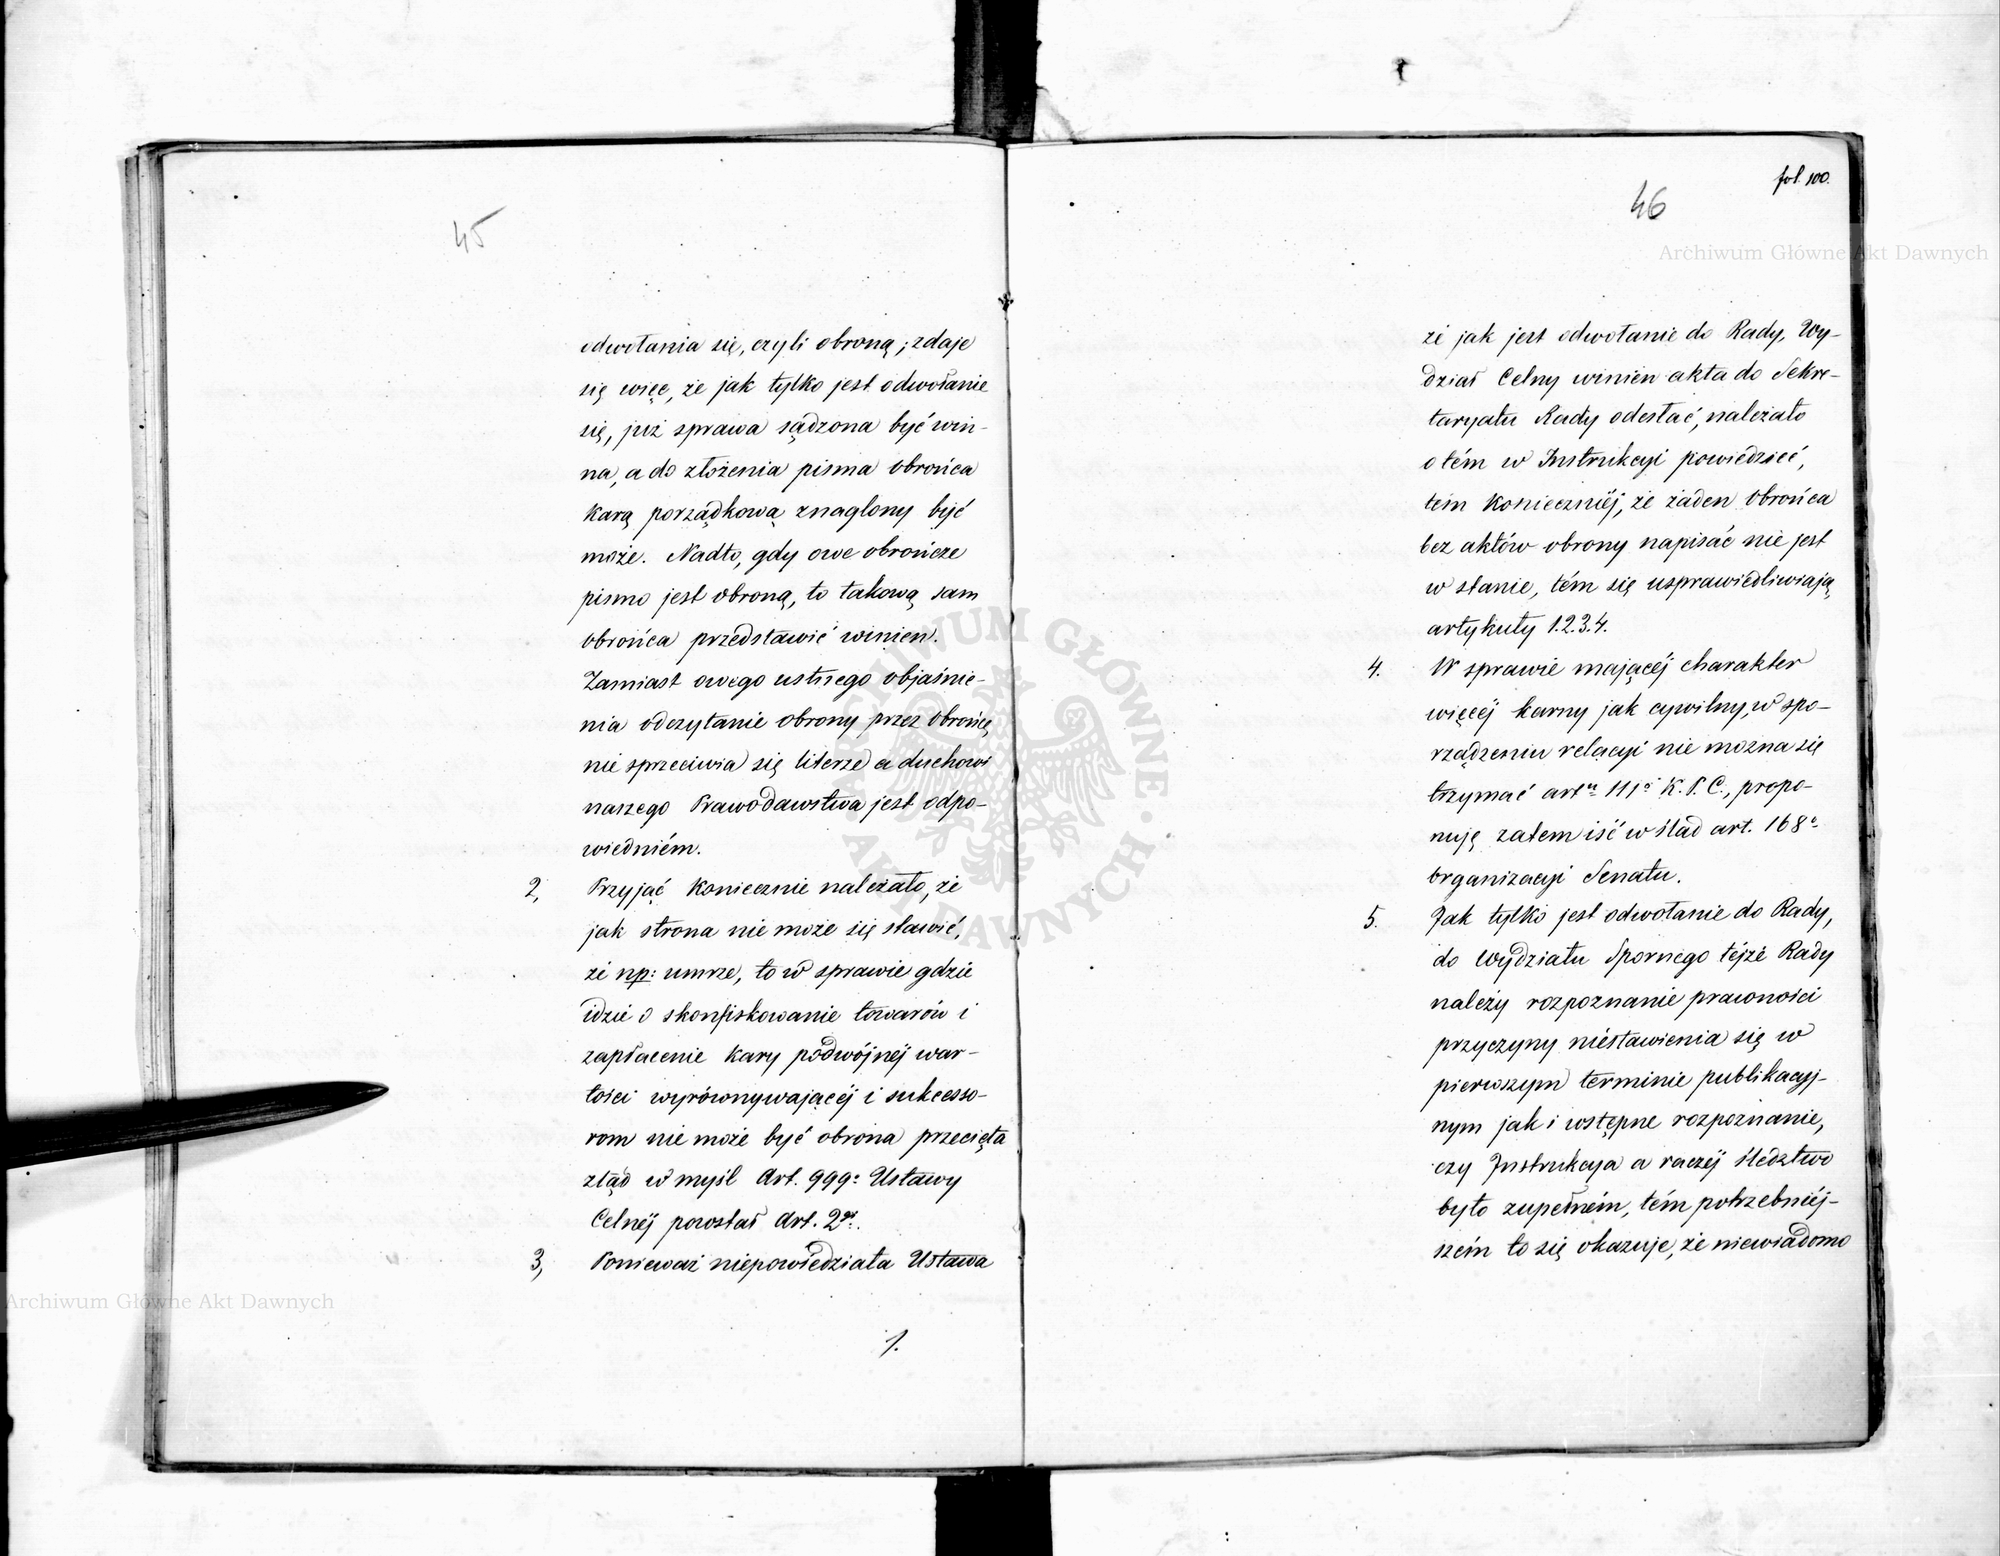 45
odwołania się, czyli obroną; zdaje
się więc, że jak tylko jest odwołanie
się, już sprawa sądzona być win-
na, a do złożenia pisma obrońca
karą porządkową znaglony być
może. Nadto, gdy owe obrończe
pismo jest obroną, to takową sam
obrońca przedstawić winien.
Zamiast owego ustnego objaśnie-
nia odczytanie obrony przez obrońcę
nie sprzeciwia się literze a duchowi
naszego Prawodawstwa jest odpo-
wiedniém.
2, Przyjąć koniecznie należało, że
jak strona nie może się stawić,
że np: umrze, to w sprawie gdzie
idzie o skonfiskowanie towarów i
zapłacenie kary podwójnéj war-
tości wyrównywającéj i sukcesso-
rom nie może być obrona przecięta
ztąd w myśl Art. 999: Ustawy
Celnéj powstał Art. 2gi.
3, Ponieważ niepowiedziała Ustawa
1.
fol. 100.
46
że jak jest odwołanie do Rady, Wy-
dział Celny winien akta do Sekre-
taryatu Rady odesłać, należało
o tém w Instrukcyi powiedzieć,
tem konieczniéj, że żaden obrońca
bez aktów obrony napisać nie jest
w stanie, tém się usprawiedliwiają
artykuły 1.2.3.4.
4. W sprawie mającéj charakter
więcéj karny jak cywilny, w spo-
rządzeniu relacyi nie można się
trzymać artu 111o K. P. C., propo-
nuję zatem iść w ślad art. 168o
organizacyi Senatu.
5. Jak tylko jest odwołanie do Rady,
do Wydziału Spornego téjże Rady
należy rozpoznanie prawności
przyczyny niestawienia się w
pierwszym terminie publikacyj-
nym jak i wstępne rozpoznanie,
czy Instrukcya a raczéj śledztwo
było zupełném, tém potrzebniéj-
szém to się okazuje, że niewiadomo
Archiwum Główne Akt Dawnych
Archiwum Główne Akt Dawnych
ARCHIWUM GŁÓWNE AKT DAWNYCH